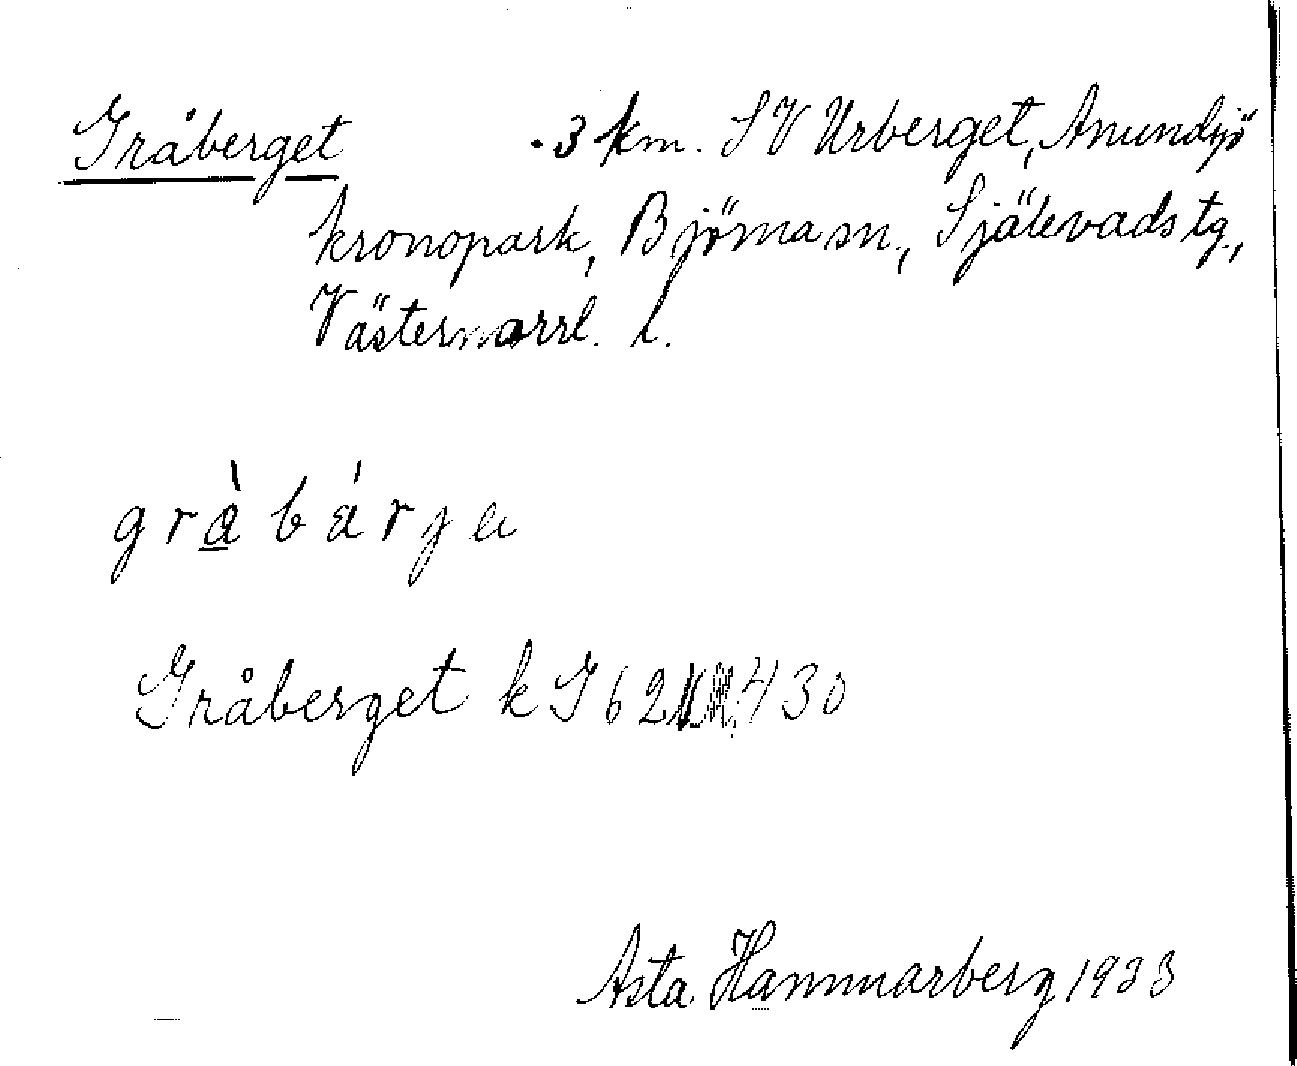 Gråberget .3 km. SV Urberget, Anundsjö
kronopark, Björna sn., Själevads tg.,
Västernorrl. l.
gràbárja
Gråberget k J 62 430
Asta Hammarberg 1933